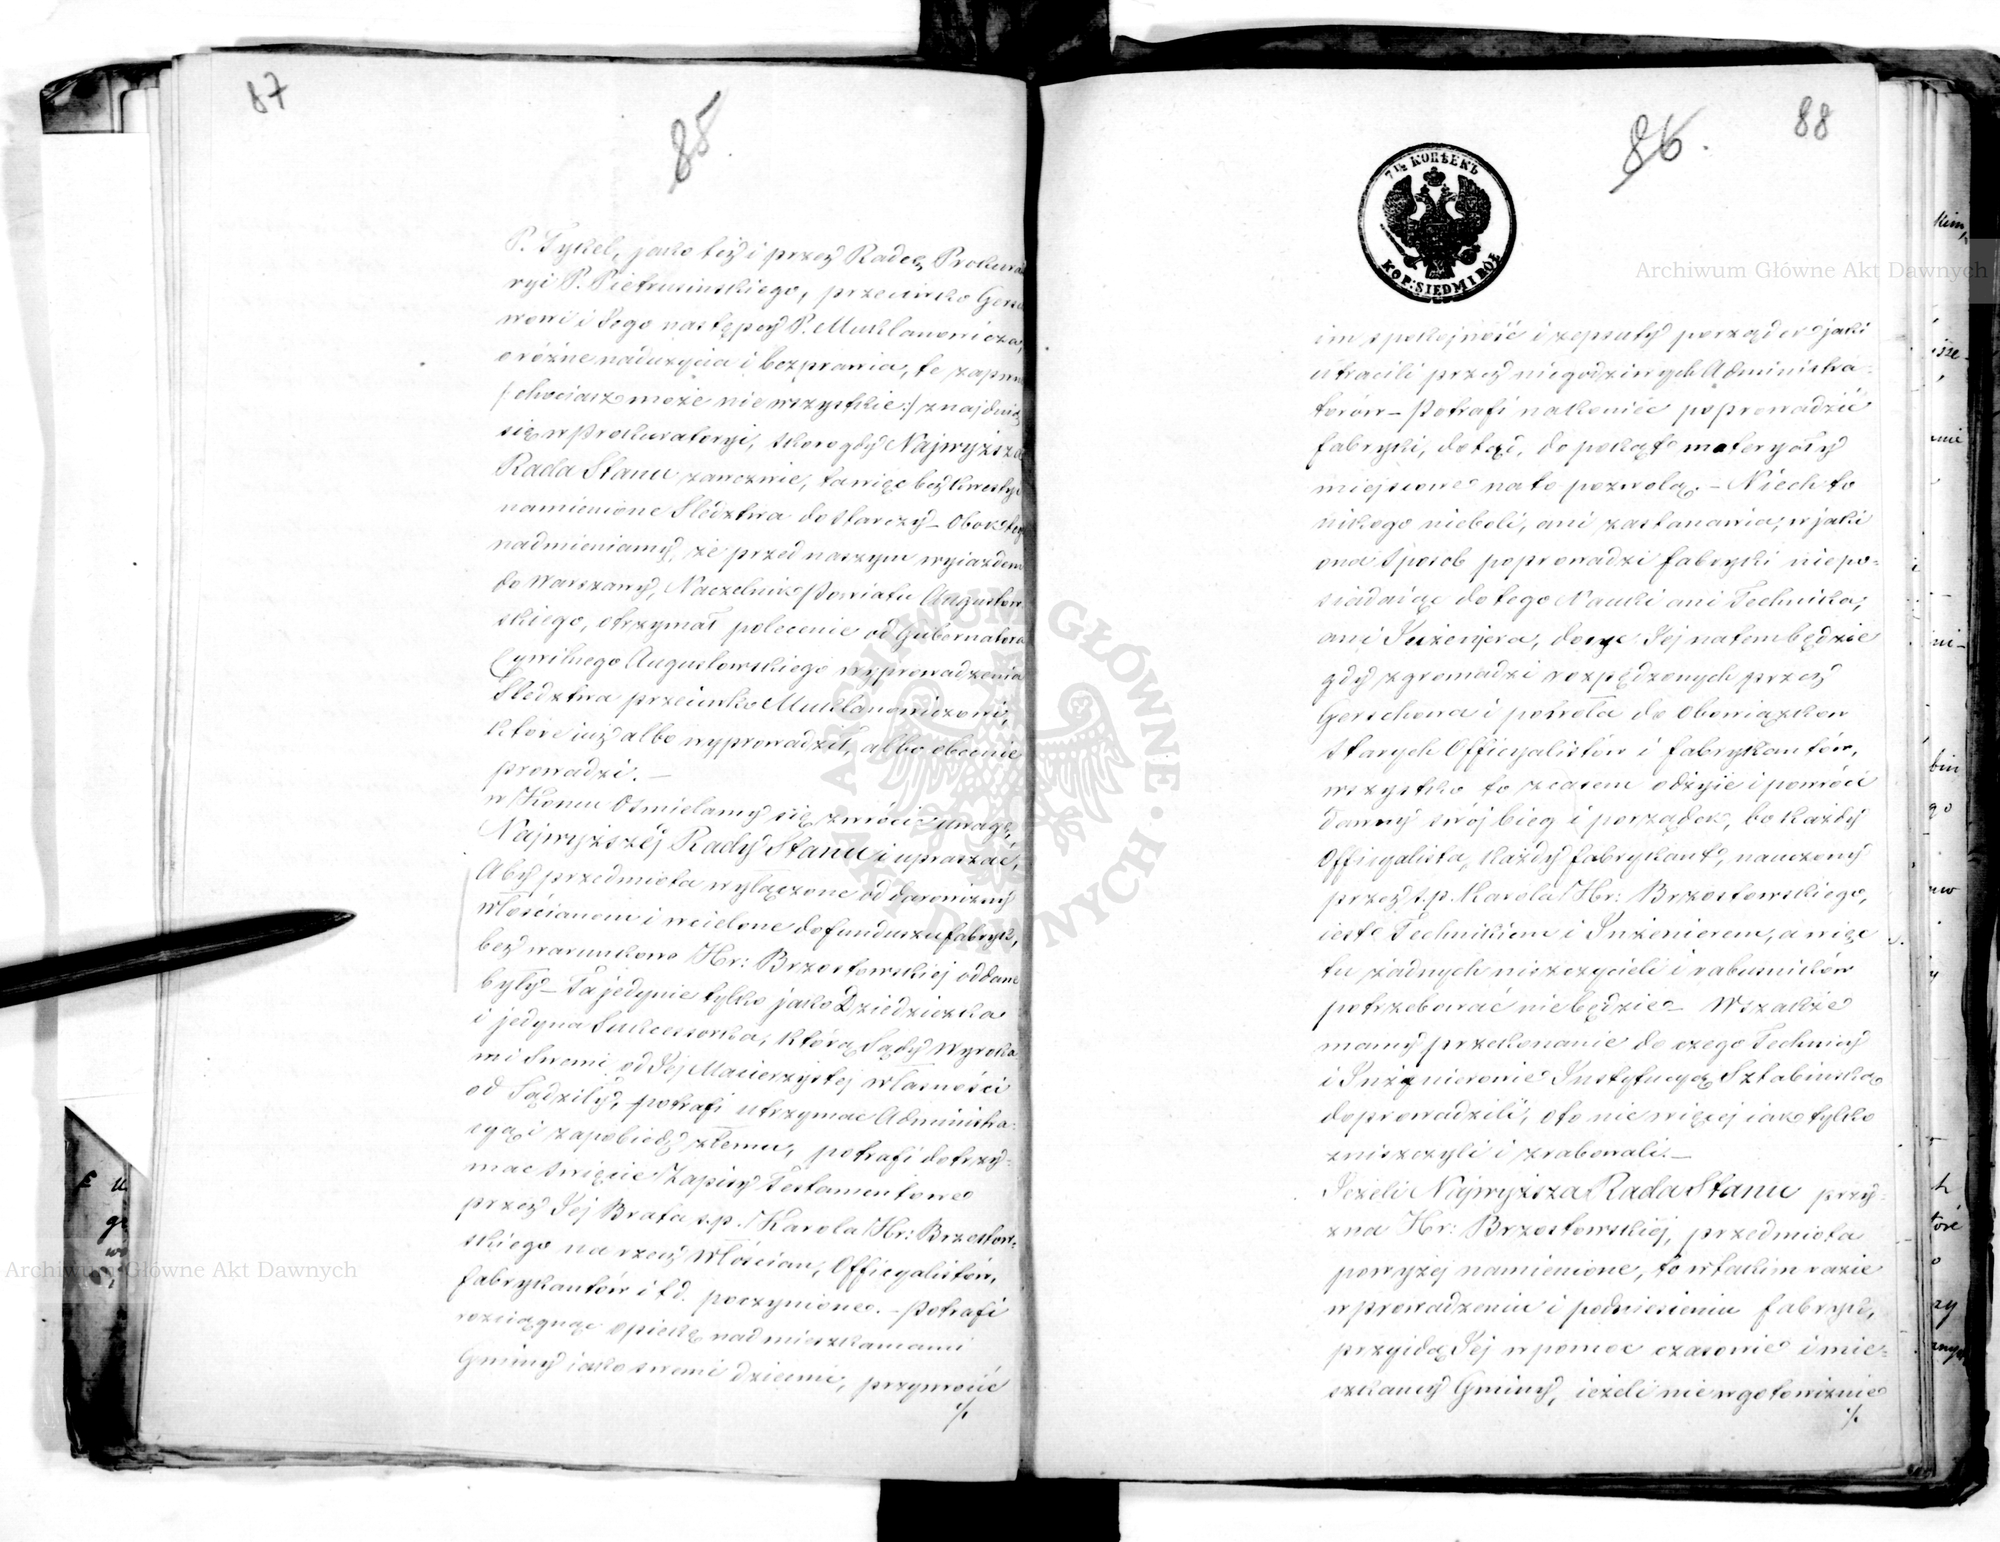 87
85.
P. Tykel, jako też i przez Radcę Prokurato
ryi P. Pietrusińskiego, przeciwko Gerscho
wowi i Jego następcy P. Muchlanowicza,
o różne nadużycia i bezprawia, te zapewne
/: chociasz może nie wszystkie :/ znajduią
się w Prokuratoryi, skoro gdy Najwyższa
Rada Stanu zawezwie, ta więc bez kwestyi
namienione Śledztwa dostarczy – Obok tego
nadmieniamy, że przed naszym wyiazdem
do Warszawy, Naczelnik Powiatu Augustow
skiego, otrzymał polecenie od Gubernatora
Cywilnego Augustowskiego wyprowadzenia
Śledztwa przeciwko Muchlanowiczowi,
które iuż albo wyprowadził, albo obecnie
prowadzi. –
w Końcu Ośmielamy się zwrócić uwagę,
Najwyższéj Rady Stanu i upraszać,
Aby przedmiota wyłączone od darowizny
włościanom i wcielone do funduszu fabryk,
bez warunkowo Hr: Brzostowskiej oddane
były – Ta jedynie tylko jako Dziedziczka
i jedyna Sukcessorka, którą Sądy Wyroka
mi Swemi od Jéj Macierzystej własności
od Sądziły, potrafi utrzymac Administra-
cyą i zapobiedz złemu, potrafi dotrzy-
mac święcie Zapisy Testamentowe
przez Jéj Brata s.p. Karola Hr: Brzostow-
skiego na rzecz Włościan, Officyalistów,
fabrykantów i t d. poczynione. – Potrafi
rozciągnąc opiekę nad mieszkancami
Gminy iako swemi dziecmi, przywrócić
./.
86.
88
7½ КОПѢЕКЪ
KOP: SIEDM I PÓŁ
im spokojność i zepsuty porządek jaki
utracili przez niegodziwych Administra-
torów – Potrafi nakoniéc poprowadzić
fabryki, dotąd, dopokąd materyały
miejscowe na to pozwolą. – Niech to
nikogo nieboli, ani zastanawia, w jaki
ona Sposob poprowadzi fabryki niepo-
siadaiąc do tego Nauki ani Technika,
ani Inżenjera, dosyc Jéj natem będzie
gdy zgromadzi rozpędzonych przez
Gerschowa i powoła do Obowiązkow
starych Officyalistów i fabrykantów,
wszystko to z czasem odżyie i powróci
dawny swój bieg i porządek, bo każdy
Officyalista, każdy fabrykant, nauczony
przez s.p. Karola Hr: Brzostowskiego,
iest Technikiem i Inżenierem, a więc
tu żadnych niszczycieli i rabusników
potrzebować niebędzie – Wszakże
mamy przekonanie do czego Technicy
i Inżynierowie Instytucyą Sztabinską
doprowadzili, oto nie więcej iak tylko
zniszczyli i zrabowali. –
Jeżeli Najwyższa Rada Stanu przy-
zna Hr: Brzostowskiéj, przedmiota
powyżej namienione, to w takim razie
w prowadzeniu i podniesieniu fabryk,
przyidą Jéj w pomoc czasowie i mie-
szkancy Gminy, ieżeli nie w gotowiznie
./.
Archiwum Główne Akt Dawnych
Archiwum Główne Akt Dawnych
ARCHIWUM GŁÓWNE AKT DAWNYCH